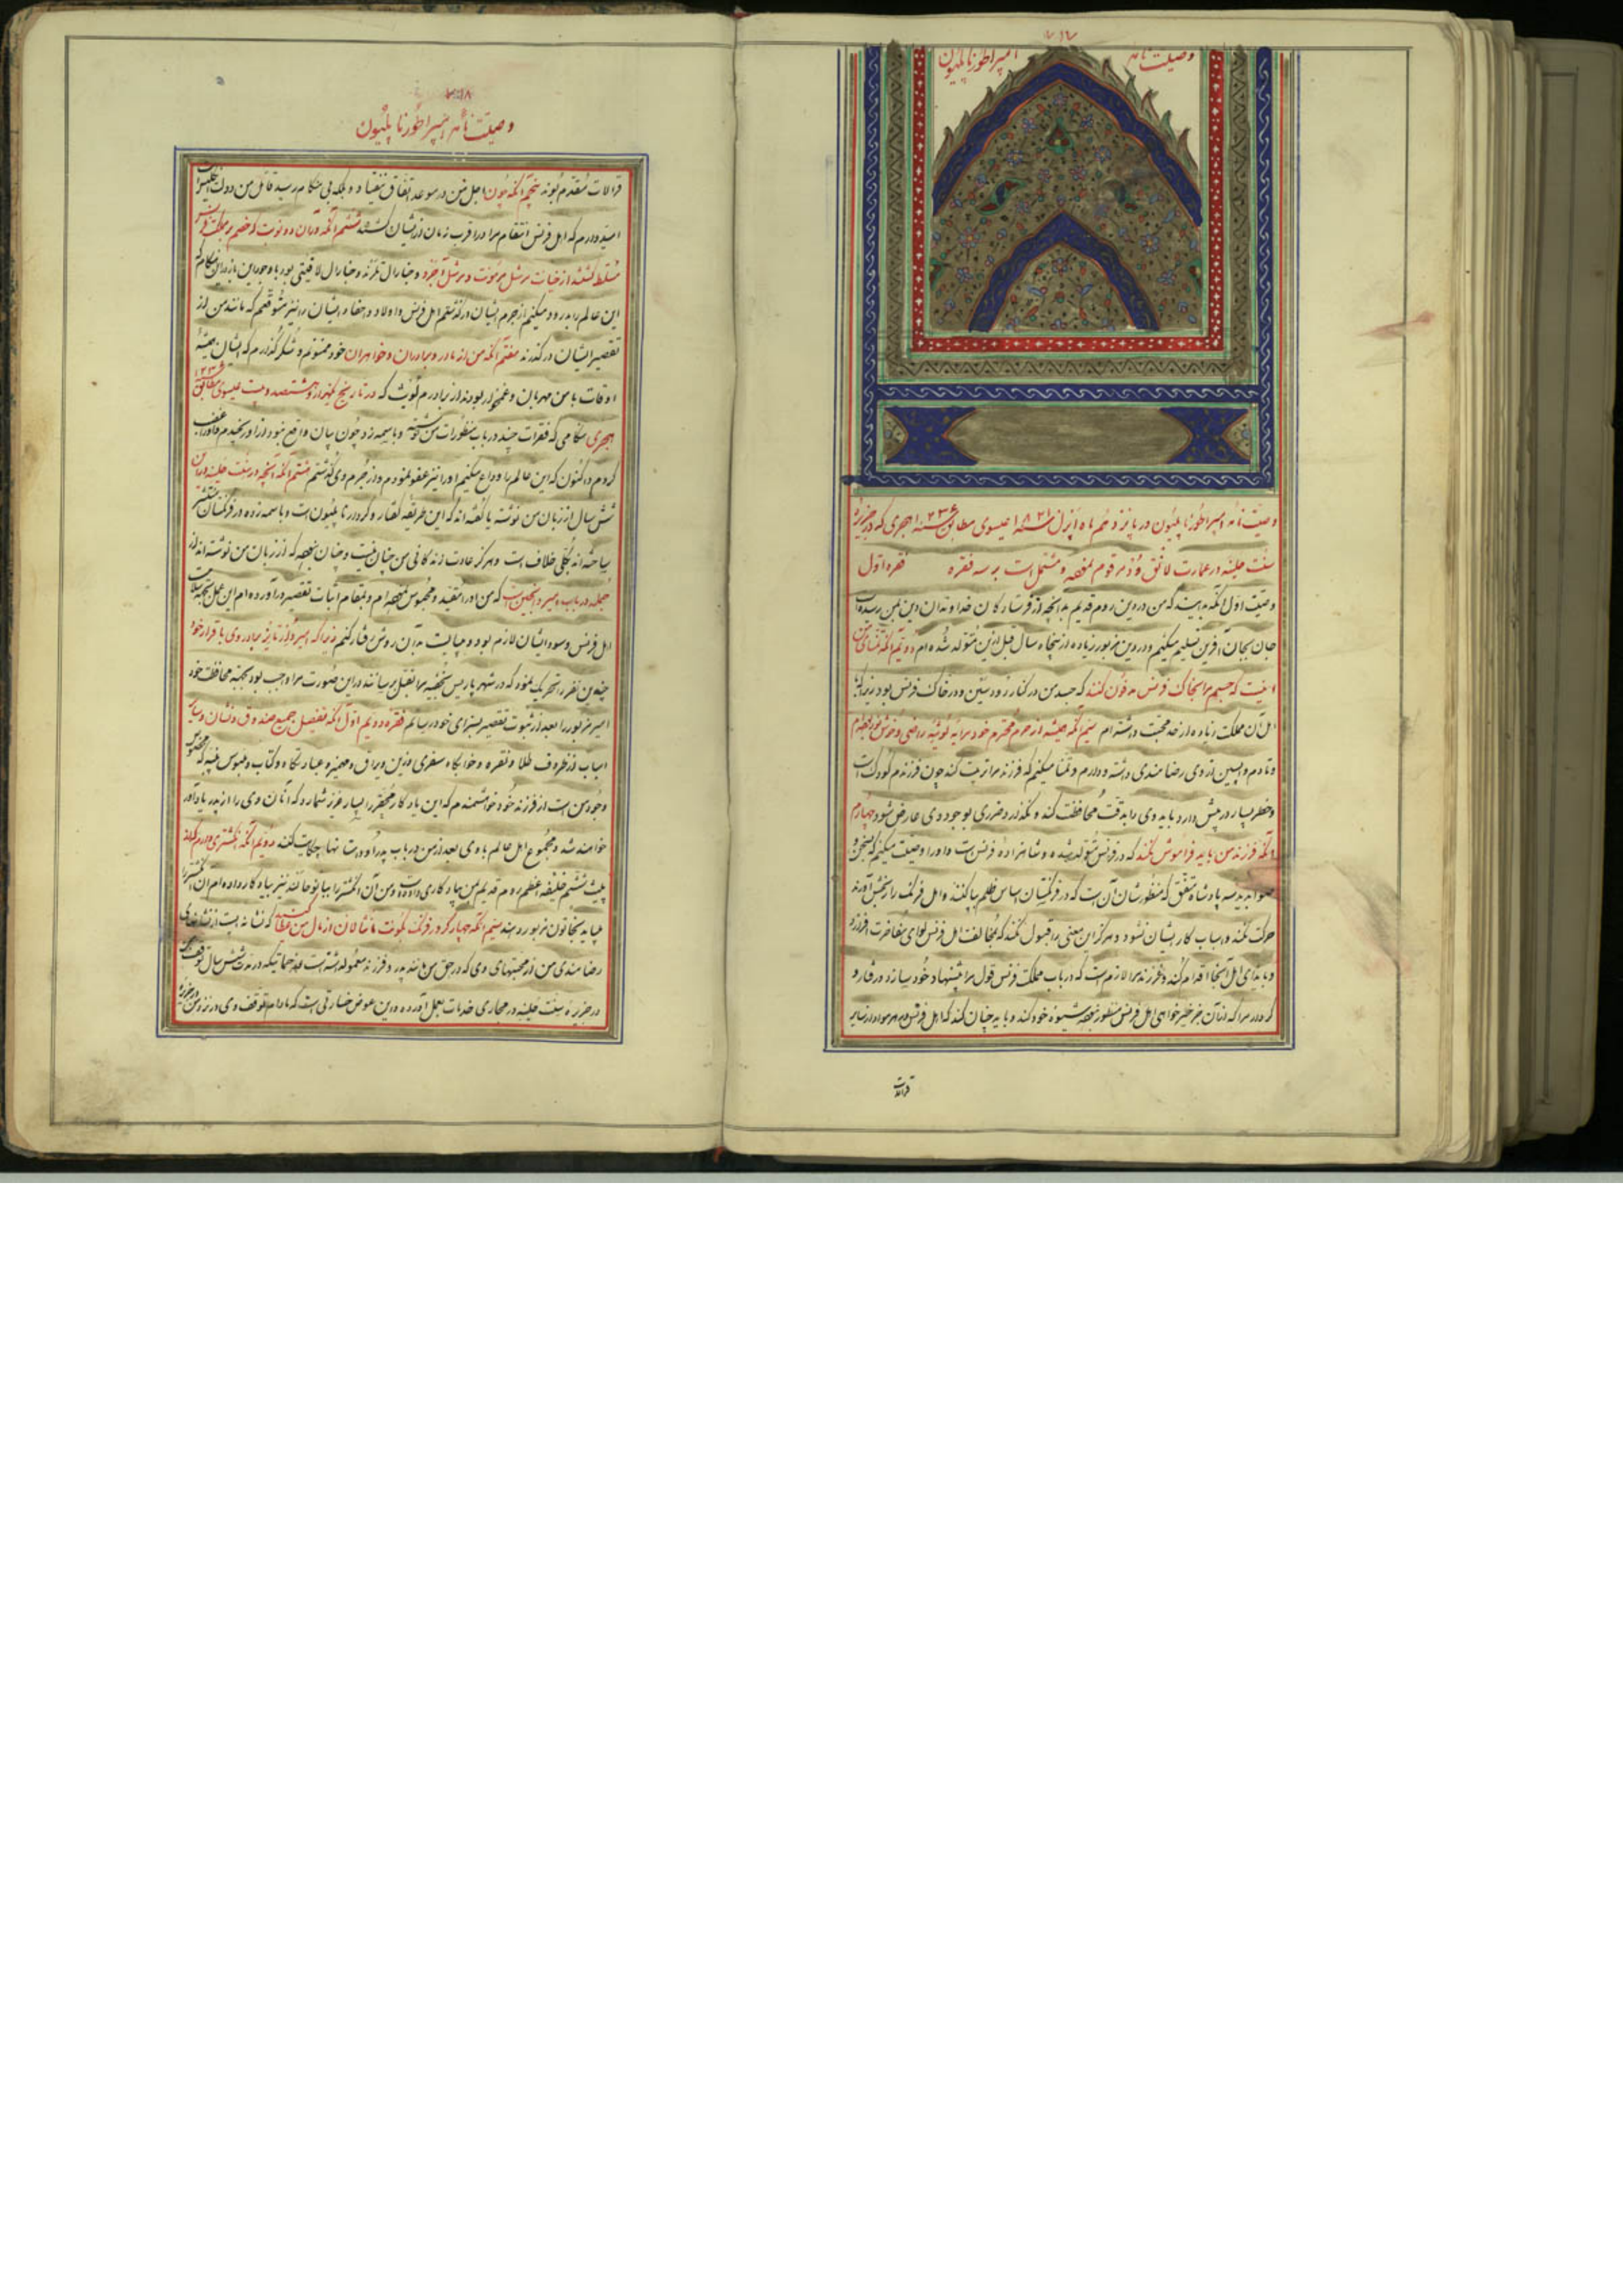 وصیت نامه امپراطور ناپلیون
وصیت نامه امپراطور ناپلیون در پانزدهم ماه اپرل سنه ۱۸۲۱ عیسوی مطابق سنه ۱۲۳۶ هجری که در جزیره
سنت هلینه در عمارت لانق وُود مرقوم نموده و مشتمل است بر سه فقره فقره اوّل
وصیت اوّل آنکه بدانید که من در دین روم قدیم به آنچه از فرستادگان خداوندان دین بمن رسیده است
جان بجان آفرین تسلیم میکنم و در دین مزبور زیاده از پنجاه سال قبل ازین متولد شده ام دویّم آنکه تمنای من
اینست که جسم مرا بخاک فرنس مدفون کنند که جسد من در کنار رود سین و در خاک فرنس بود زیرا که با
اهل آن مملکت زیاده از حد محبت داشته ام سیّم آنکه همیشه از حرم محترم خود مرایه لوئیه راضی و خوشنود بوده ام
و تا دم واپسین از وی رضامندی داشته و دارم و تمنا میکنم که فرزند مرا تربیت کند چون فرزندم کودک است
و خطر بسیار در پیش دارد باید وی را بدقّت محافظت کند و نگذارد ضرری بوجود وی عارض شود چهارم
آنکه فرزند من باید فراموش نکند که در فرنس متولد شده و شاهزاده فرنس است و او را وصیت میکنم که بسخن و
صوابدید سه پادشاه متفق که منظورشان آن است که در فرنگستان اساس ظلم برپا کنند و اهل فرنگ را بجنبش آورند
حرکت نکند و اسباب کار ایشان نشود و هرگز این معنی را قبول نکند که بمخالفت اهل فرنس لوای مفاخرت افرازد
و بایذای اهل آنجا اقدام کند و فرزند مرا لازم است که در باب مملکت فرنس قول مرا پیشنهاد خود سازد و رفتار و
کردار مرا که از آن جز خیرخواهی اهل فرنس منظور نبوده شیوه خود کند و باید چنان کند که اهل فرنس در هر مواد از سایر
قرالات
وصیت نامه امپراطور ناپلیون
قرالات مقدم بوند پنجم آنکه چون اجل من در موعد اتفاق نیفتاد و بلکه بی هنگام رسید قاتل من دولت انگلیس است
امیدوارم که اهل فرنس انتقام مرا در اقرب زمان از ایشان کشند ششم آنکه در آن دو نوبت که خصم بر مملکت فرنس
مسلط گشتند از خیانت مرشل مرمونت و مرشل اُجرد و جنارال تلرند و جنارال لافیتی بود با وجود این باز در این هنگام که
این عالم را بدرود میکنم از جرم ایشان درگذشتم اهل فرنس و اولاد و احفاد ایشان را نیز متوقعم که مانند من از
تقصیر ایشان درگذرند هفتم آنکه من از مادر و برادران و خواهران خود ممنونم و شکرگذارم که ایشان همیشه
اوقات با من مهربان و غمخوار بودند از برادرم لوئیث که در تاریخ یکهزار و هشتصد و بیست عیسوی مطابق ۱۲۳۵
هجری هنگامی که فقرات چند در باب منظورات من نوشته و باسمه زد چون بیان واقع نبود از او رنجیدم
کردم و اکنون که این عالم را وداع میکنم او را نیز عفو نمودم و از جرم وی گذشتم هشتم آنکه آنچه در سنت هلینه در آن
شش سال از زبان من نوشته یا گفته اند که این طریقه گفتار و کردار ناپلیون است و باسمه زده در فرنگستان منتشر
ساخته اند بکلی خلاف است و هرگز عادت زندگانی من چنان نیست و چنان نبوده که از زبان من نوشته اند از
جمله در باب امیر دانجین است که من او را مقید و محبوس نموده ام و بمقام اثبات تقصیر درآورده ام این عمل بجهة سلامت
اهل فرنس و سود ایشان لازم بود و میبایست به آن روش رفتار کنم زیرا که امیر دارتایز برادر وی باقرار خود
چندین نفر را تحریک نمود که در شهر پاریس بخفیه مرا بقتل برسانند در این صورت مرا واجب بود بجهة محافظت خود
امیر مزبور را بعد از ثبوت تقصیر بسزای خود رسانم فقره دویم اوّل آنکه تفصیل جمیع صندوق و نشان و سایر
اسباب از ظروف طلا و نقره و خوابگاه سفری و زین و یراق و مهمیز و عبادتگاه و کتاب و ملبوس و پنبه که مخصوص
وجود من است از فرزند خود خواهشمندم که این یادگار محقر را بسیار عزیز شمارد که از آن وی را از پدر یادآور
خواهند شد و مجموع اهل عالم با وی بعد از من در باب پدر او داستانها حکایت کنند دویم آنکه انگشتری دارم که از
پیث ششم خلیفه اعظم روم قدیم بمن یادگاری داده و من آن انگشتر را نیز بیادگار داده ام آن انگشتر را
میباید بخاتون مزبور دهند سیّم آنکه چهار کرور فرنگ بکونت مانتالان از مال من عطا کنند که نشانه ایست از نشانهای
رضامندی من از محبتهای وی که در حق من مانند پدر و فرزند معمول داشته است و خدماتیکه در مدت شش سال توقف من
در جزیره سنت هلینه در مجاری خدمات بعمل آورده و در این عوض خسارتی است که مادام توقف وی در نزد من در جزیره